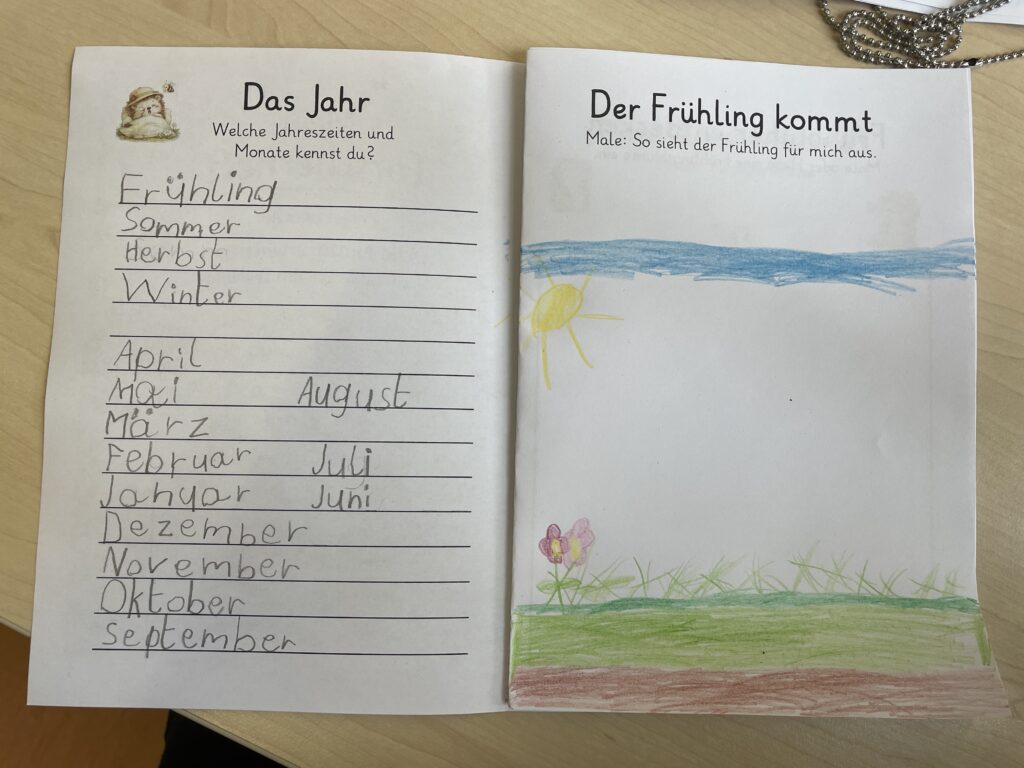 Das Jahr
Welche Jahreszeiten und
Monate kennst du?
Frühling
Sommer
Herbst
Winter
April
Mai August
März
Februar Juli
Januar Juni
Dezember
November
Oktober
september
Der Frühling kommt
Male: So sieht der Frühling für mich aus.